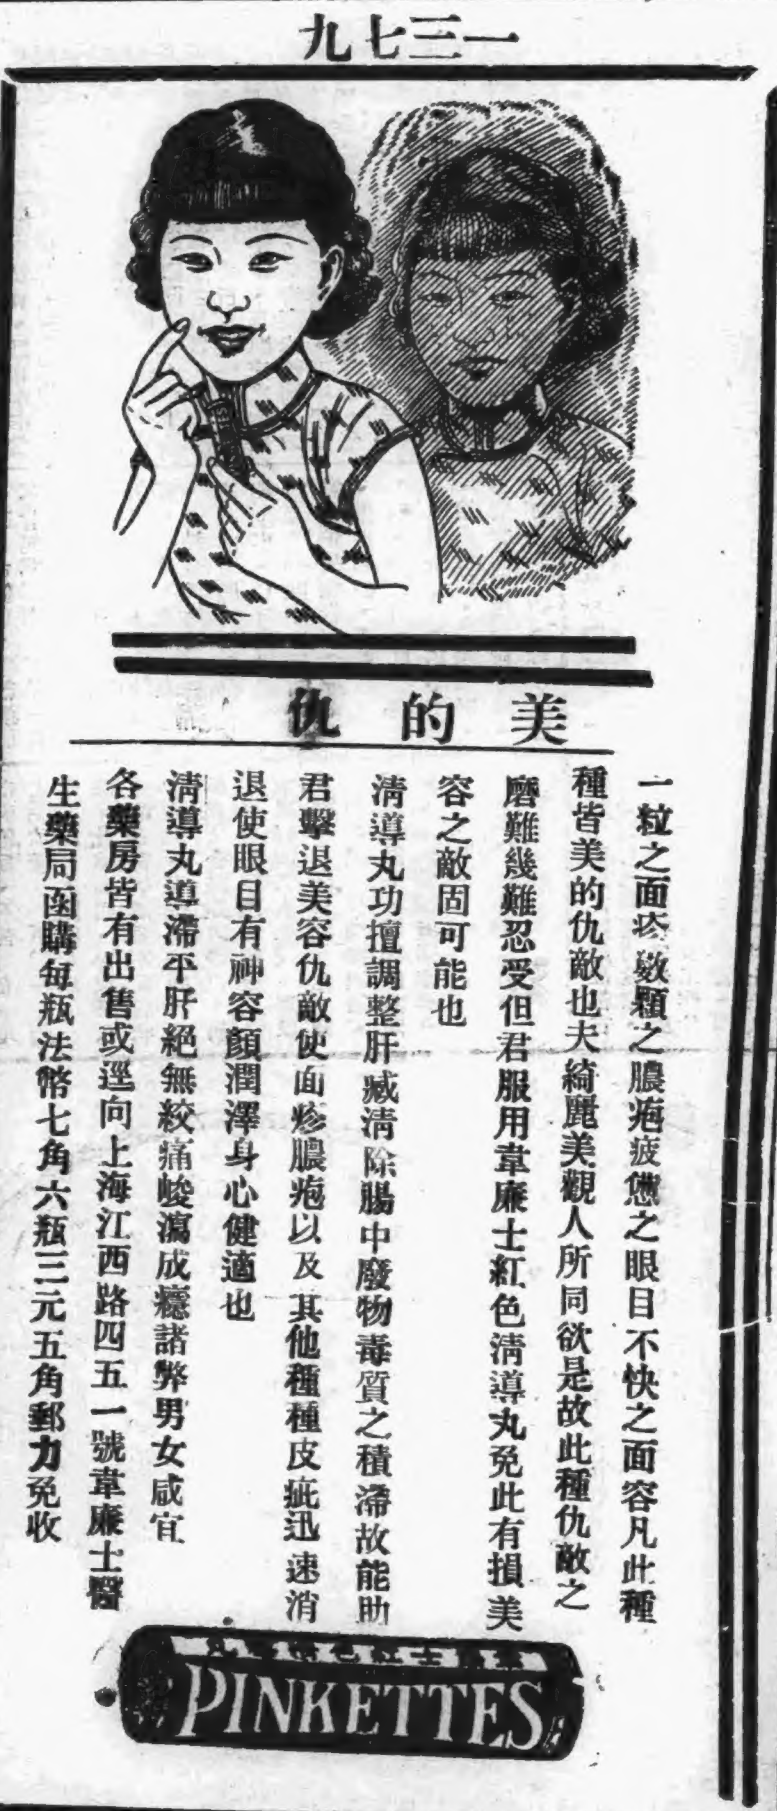 一三七九
美的仇
一粒之面疹数顆之膿疱疲憊之眼目不快之面容凡此種
種皆美的仇敵也夫綺麗美觀人所同欲是故此種仇敵之
磨難幾難忍受但君服用韋廉士紅色清導丸免此有損美
容之敵固可能也
清導丸功擅調整肝臟清除腸中廢物毒質之積滯故能助
君擊退美容仇敵使面疹膿疱以及其他種種皮疵迅速消
退使眼目有神容顏潤澤身心健適也
清導丸導滯平肝絕無絞痛峻瀉成癮諸弊男女咸宜
各藥房皆有出售或逕向上海江西路四五一號韋廉士醫
生藥局函購每瓶法幣七角六瓶三元五角郵力免收
PINKETTES